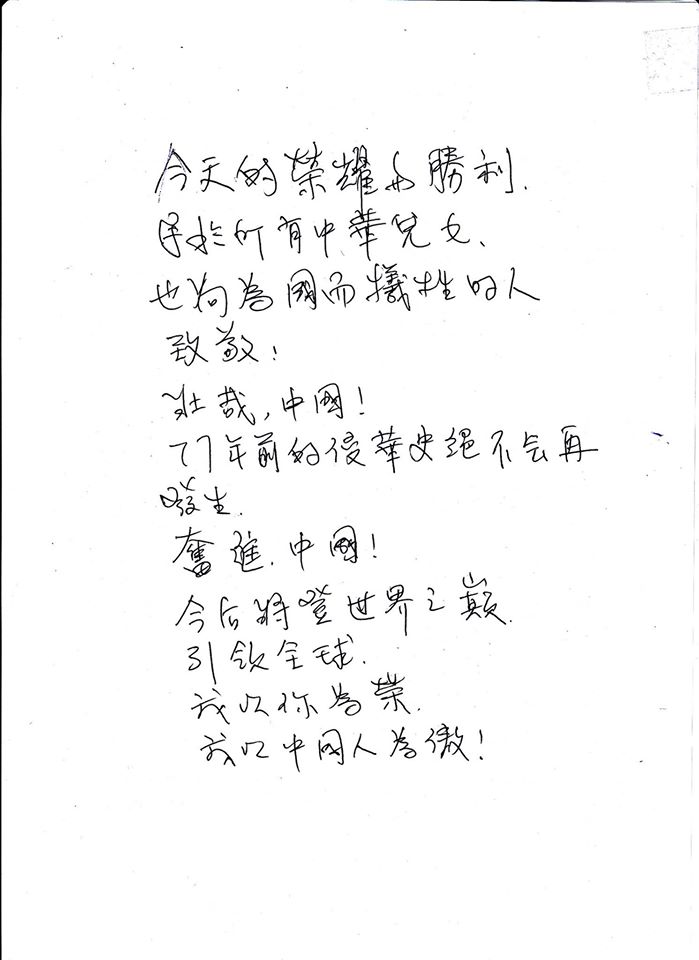 今天的榮耀与勝利.
屬於所有中華兒女、
也向為國而犧牲的人
致敬!
壯哉,中國!
77年前的侵華史絕不会再
發生.
奮進.中國!
今后將登世界之巔.
引領全球.
我以你為榮.
我以中國人為傲!